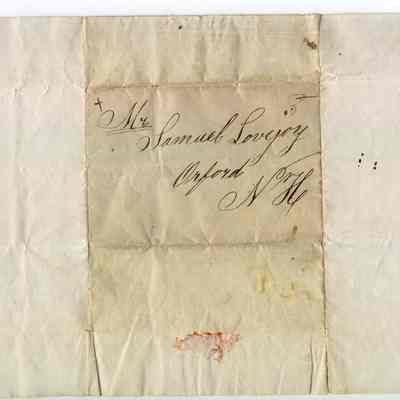 Mr. Samuel Lovejoy
Orford
N H